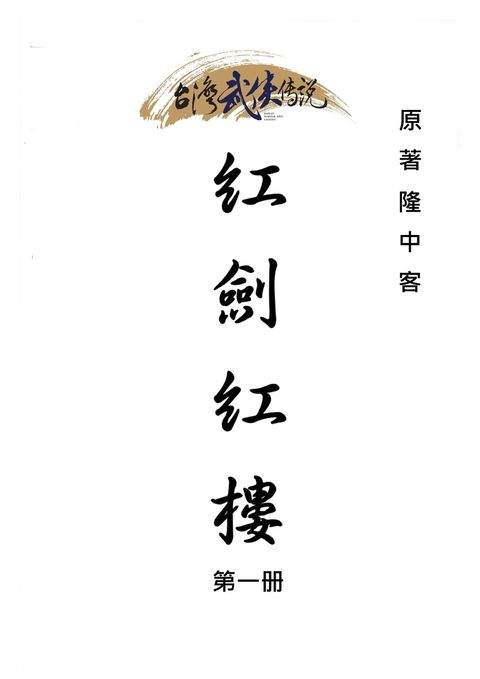 台灣武俠传说
原著隆中客
紅劍紅樓
第一册